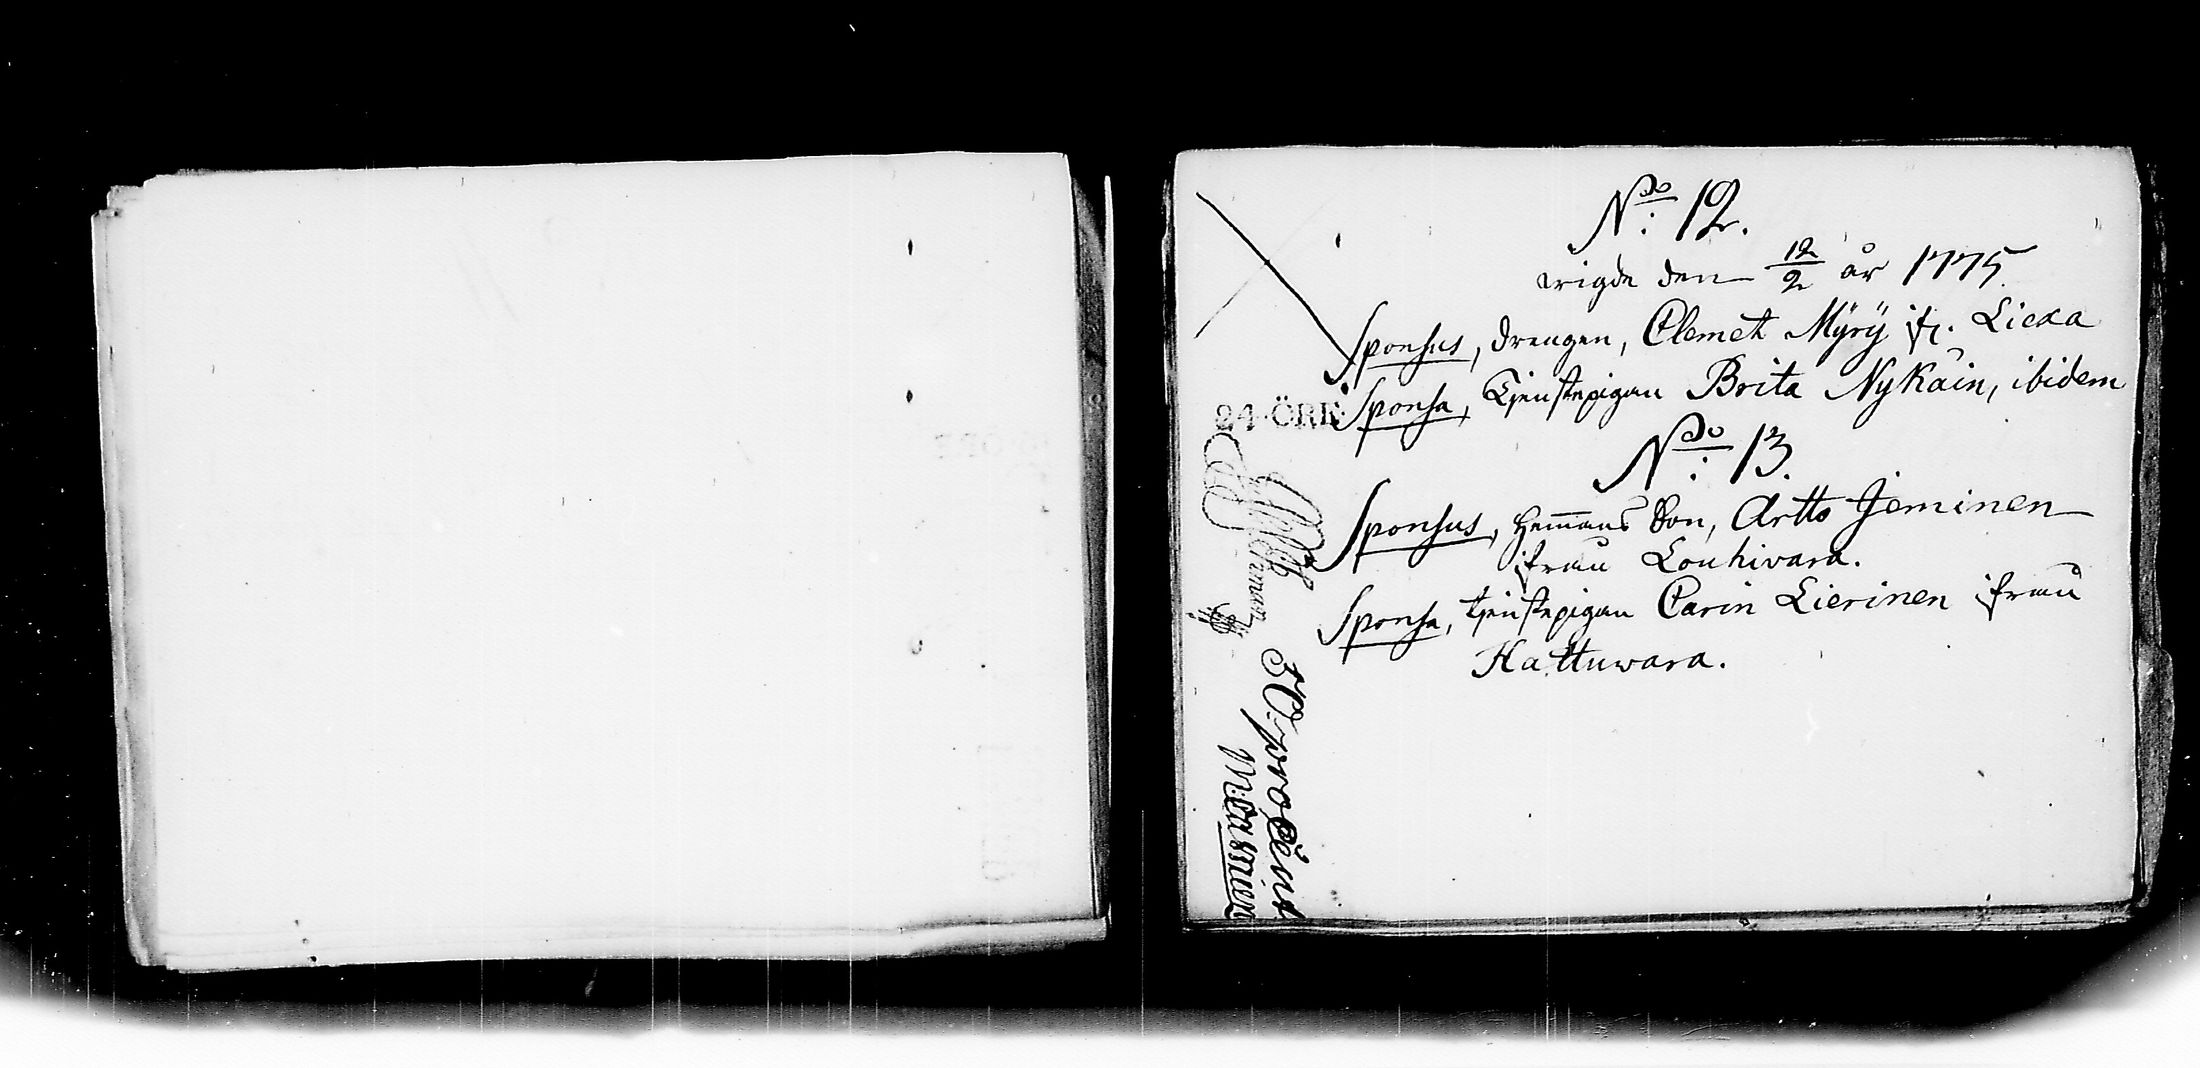 No: 12.
wigde den 12/2 år 1775.
Sponsus, drengen, Clemet Mÿrÿ ifr. Liexa
Sponsa, Tjenstepigan Brita Nykäin, ibidem
No: 13.
Sponsus, Hem̄ans Son, Artto Jeminen
ifrån Louhivara.
Sponsa, tjenstepigan Carin Lierinen ifrån
Hattuwara.
24·ÖRE